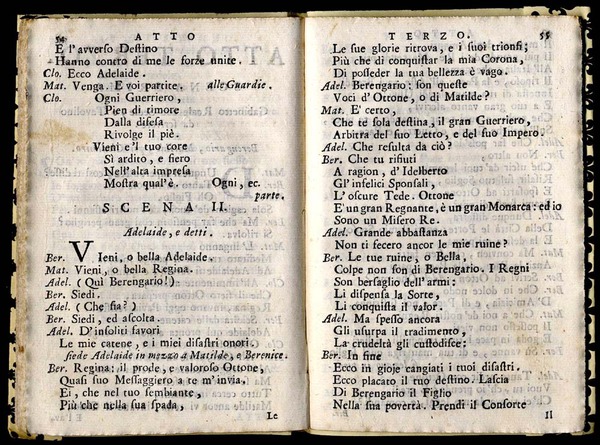 54 ATTO
E l'avverso Deſtino
Hanno contro di me le forze unite.
Clo. Ecco Adelaide.
Mat. Venga. E voi partite. alle Guardie.
Clo. Ogni Guerriero,
Pien di timore
Dalla difeſa
Rivolge il piè.
Vieni e'l tuo core
Sì ardito, e fiero
Nell'alta impreſa
Moſtra qual'è. Ogni, ec.
parte.
SCENA II.
Adelaide, e detti.
Ber. VIeni, o bella Adelaide.
Mat. Vieni, o bella Regina.
Adel. (Quì Berengario!)
Ber. Siedi.
Adel. (Che fia?)
Ber. Siedi, ed aſcolta.
Adel. D'inſoliti favori
Le mie catene, e i miei diſaſtri onori.
ſiede Adelaide in mezzo a Matilde, e Berenice.
Ber. Regina: il prode, e valoroſo Ottone,
Quaſi ſuo Meſſaggiero a te m'invia.
Ei, che nel tuo ſembiante,
Più che nella ſua ſpada,
Le
TERZO. 55
Le ſue glorie ritrova, e i ſuoi trionfi;
Più che di conquiſtar la mia Corona,
Di poſſeder la tua bellezza è vago.
Adel. Berengario: ſon queſte
Voci d'Ottone, o di Matilde?
Mat. E' certo,
Che te ſola deſtina, il gran Guerriero,
Arbitra del ſuo Letto, e del ſuo Impero.
Adel. Che reſulta da ciò?
Ber. Che tu rifiuti
A ragion, d'Idelberto
Gl'infelici Sponſali,
L'oſcure Tede. Ottone
E' un gran Regnante, è un gran Monarca: ed io
Sono un Miſero Re.
Adel. Grande abbaſtanza
Non ti fecero ancor le mie ruine?
Ber. Le tue ruine, o Bella,
Colpe non ſon di Berengario. I Regni
Son berſaglio dell'armi:
Li diſpenſa la Sorte,
Li conquiſta il valor.
Adel. Ma ſpeſſo ancora
Gli uſurpa il tradimento,
La crudeltà gli cuſtodiſce:
Ber. In fine
Ecco in gioje cangiati i tuoi diſaſtri.
Ecco placato il tuo deſtino. Laſcia
Di Berengario il Figlio
Nella ſua povertà. Prendi il Conſorte
Il